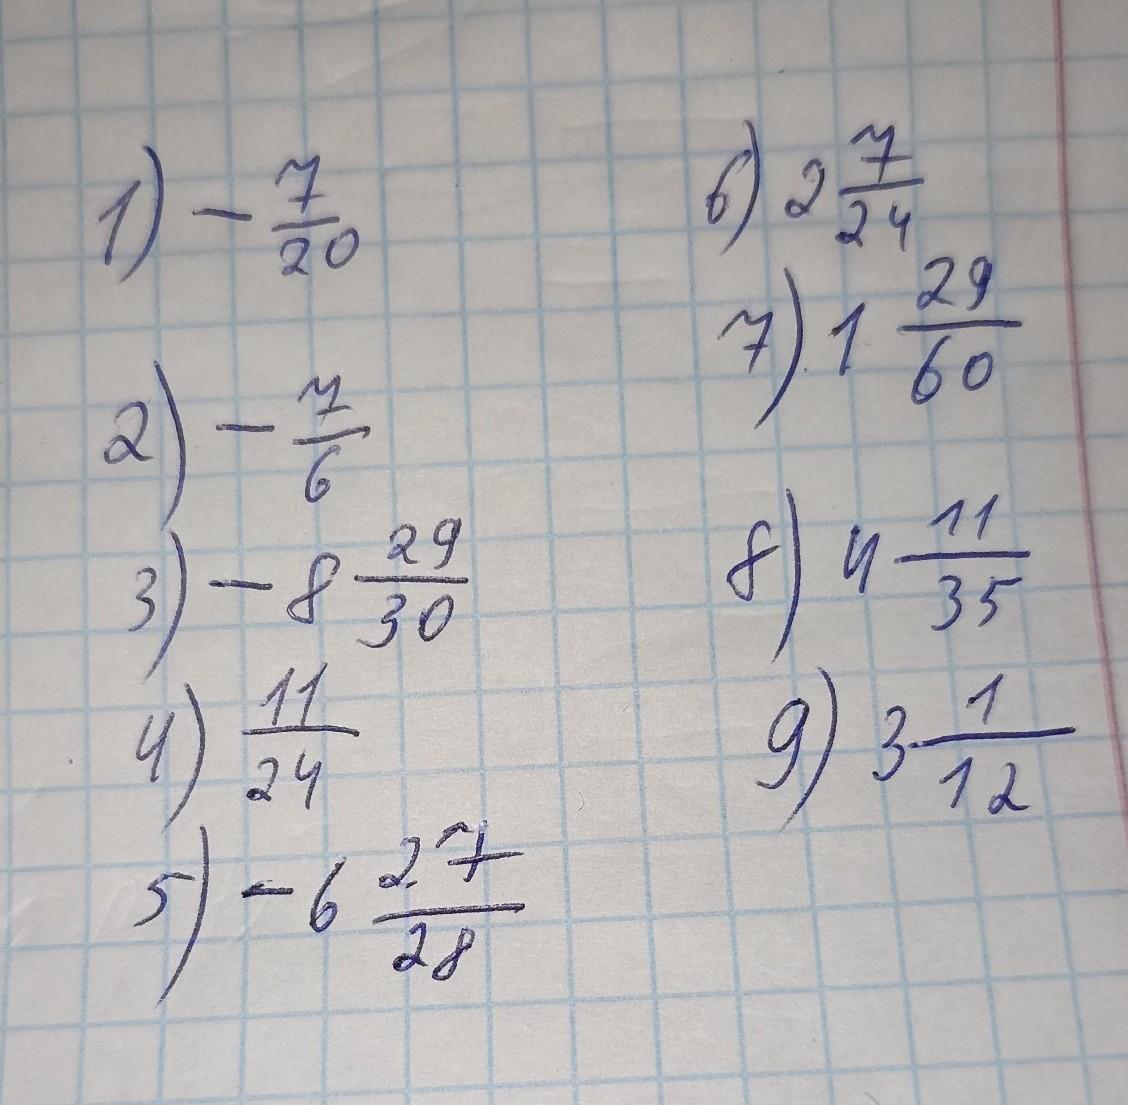 1) - 7/20
2) - 7/6
3) - 8 29/30
4) 11/24
5) - 6 27/28
6) 2 7/24
7) 1 29/60
8) 4 11/35
9) 3 1/12